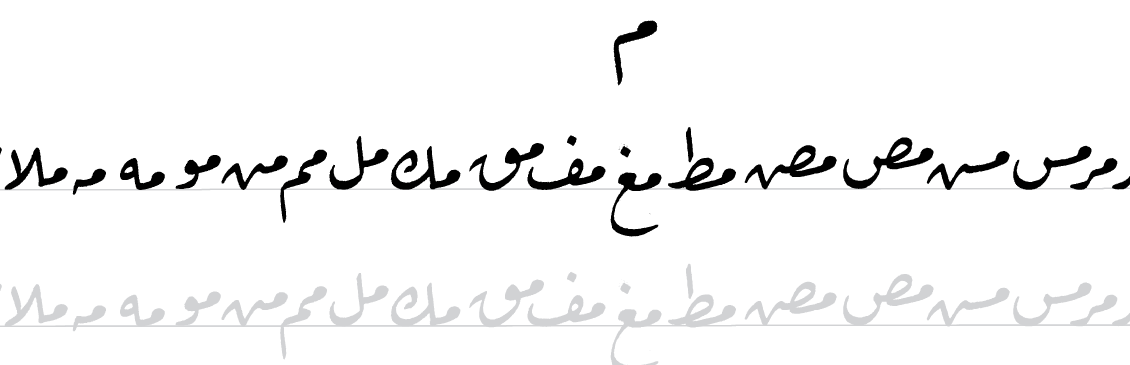 م
مر مس مس مص مص مط مغ مف مق مك مل مم من مو مه مه ملا
مر مس مس مص مص مط مغ مف مق مك مل مم من مو مه مه ملا